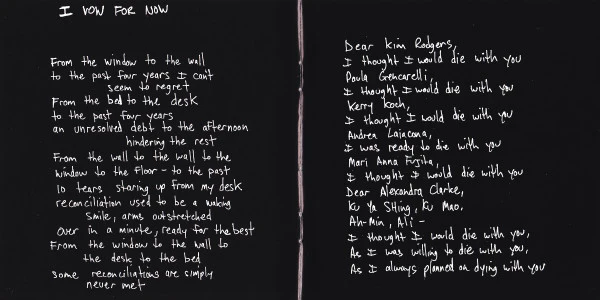 I VOW FOR NOW
From the window to the wall
to the past four years I can't
seem to regret
From the bed to the desk
to the past four years
an unresolved debt to the afternoon
hindering the rest
From the wall to the wall to the
window to the floor - to the past
10 tears staring up from my desk
reconciliation used to be a waking
smile, arms outstretched
Over in a minute, ready for the best
From the window to the wall to
the desk to the bed
some reconciliations are simply
never met
Dear Kim Rodgers,
I thought I would die with you
Paula Gencarelli,
I thought I would die with you
Kerry Koch,
I thought I would die with you
Andrea Laiacona,
I was ready to die with you
Mari Anna Fujita,
I thought I would die with you
Dear Alexandra Clarke,
Ku Ya SHing, Ku Mao,
Ah-Min, Ali -
I thought I would die with you,
As I was willing to die with you,
As I always planned on dying with you